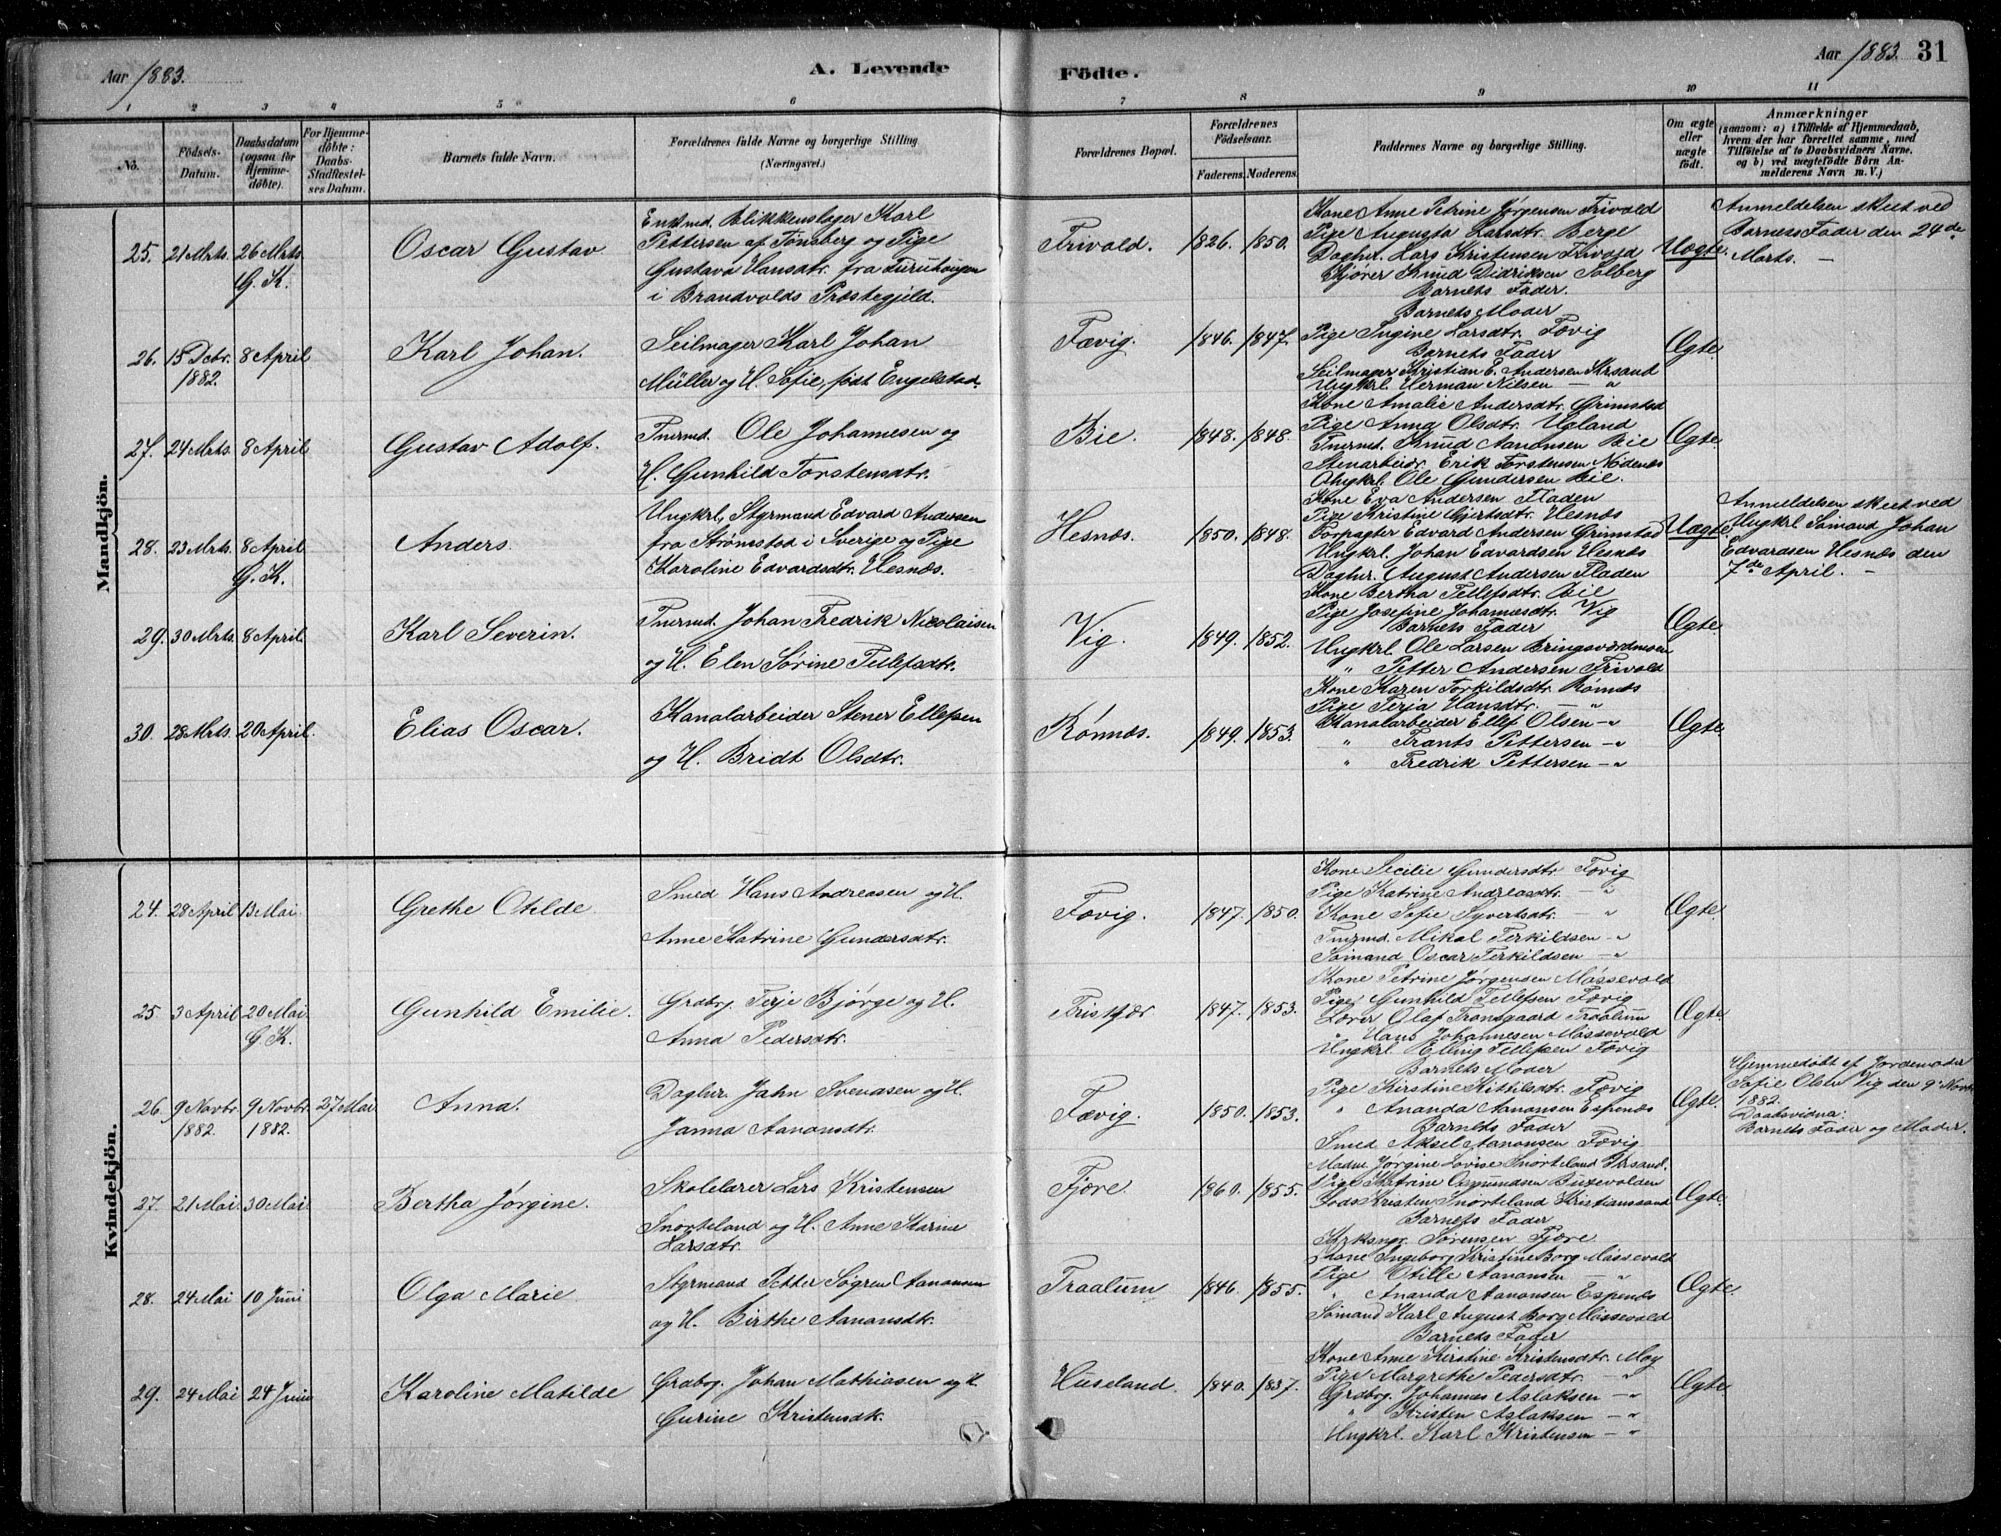 Aar 1883.
A. Levende Fødte.
Aar 1883. 31
1 2 3 4 5 6 7 8 9 10 11
No.
Födsels-Datum.
Daabsdatum (ogsaa for Hjemme-døbte).
For Hjemme-døbte: Daabs-Stadfæstel-ses Datum.
Barnets fulde Navn.
Forældrenes fulde Navne og borgerlige Stilling (Næringsvei.)
Forældrenes Bopæl.
Forældrenes Födselsaar.
Faderens. Moderens.
Faddernes Navne og borgerlige Stilling.
Om ægte eller uægte født.
Anmærkninger
(saasom: a) i Tilfælde af Hjemmedaab,
hvem der har forrettet samme, med
Tilföielse af to Daabsvidners Navne.
og b) ved uægtefödte Börn An-
melderens Navn m. V.)
Mandkjön.
25. 21 Mrts. 26 Mrts. G. K.
Oscar Gustav
Enkmd. Blikkenslager Karl
Pettersen af Tønsberg og Pige
Gustava Hansdtr. fra Furuhaugen
i Brandvolds Præstegjeld.
Frivold. 1826. 1850.
Kone Anne Petrine Jørgensen Frivold
Pige Augusta Larsdtr. Berge
Daglnr. Lars Kristensen Frivold
Knud Didriksen Solberg
Barnets Fader.
Uægte.
Anmeldelsen skeet ved
Barnets Fader den 24de
Marts. —
26. 15 Decbr. 1882. 8 April
Karl Johan.
Seilmager Karl Johan
Müller og H. Sofie, født Engelstad.
Fævig. 1846. 1847.
Barnets Moder
Pige Ingine Larsdtr. Fævig
Barnets Fader
Seilmager Kristian E. Andersen Krsand
Ungkrl. Herman Nilsen — "
Ægte.
27. 24 Mrts. 8 April
Gustav Adolf.
Tmrmd. Ole Johannesen og
H. Gunhild Torstensdtr.
Bie. 1848. 1848.
Kone Amalie Andersdtr. Grimstad
Pige Anna Olsdtr. Ugland
Tmrmd. Knud Aanonsen Bie
Stenarbeidr. Erik Torstensen Nødenæs
Ungkrl. Ole Gundersen Bie.
Ægte.
28. 23 Mrts. 8 April G. K.
Anders.
Ungkrl. Styrmand Edvard Andersen
fra Strømstad i Sverige og Pige
Karoline Edvardsdtr. Hesnæs.
Hesnæs. 1850. 1848.
Kone Eva Andersen Fladen
Pige Kristine Gjertsdtr. Hesnæs
Forpagter Edvard Andersen Grimstad
Ungkrl. Johan Edvardsen Hesnæs
Daglnr. August Andersen Fladen
Uægte.
Anmeldelsen skeet ved
Ungkrl Sømand Johan
Edvardsen Hesnæs den
7de April. —
29. 30 Mrts. 8 April.
Karl Severin.
Tmrmd. Johan Fredrik Nicolaisen
og H. Elen Sørine Tellefsdtr.
Vig. 1849. 1852.
Kone Bertha Tellefsdtr. Bie
Pige Josefine Johannesdtr. Vig
Barnets Fader
Ungkrl. Ole Larsen Bringsværdmoen
" Petter Andersen Frivold
Ægte.
30. 28 Mrts. 20 April.
Elias Oscar.
Kanalarbeider Stener Ellefsen
og H. Bridt Olsdtr.
Rønnæs. 1849. 1853.
Kone Karen Torkildsdtr. Rønnæs
Pige Terja Hansdtr. — "
Kanalarbeider Ellef Olsen — "
" Frants Pettersen — "
" Fredrik Pettersen — "
Ægte.
Kvindekjön.
24. 28 April 13 Mai
Grethe Otilde.
Smed Hans Andreasen og H.
Anne Katrine Gundersdtr.
Fævig. 1847. 1850.
Kone Secilie Gundersdtr. Fævig
Pige Katrine Andreasdtr. — "
Kone Sofie Syvertsdtr. — "
Tmrmd. Mikal Terkildsen — "
Sømand Oscar Terkildsen — "
Ægte.
25. 3 April 20 Mai. G K.
Gunhild Emilie.
Grdbrg. Terje Bjørge og H.
Anna Pedersdtr.
Friskjær 1847. 1853.
Kone Petrine Jørgensen Massevold
Pige Gunhild Tellefsen Fævig
Lærer Olaf Tronsgaard Traalum
" Hans Johannesen Massevold
Ungkrl. Elling Tellefsen Fævig
Ægte.
26. 9 Novbr. 1882. 9 Novbr. 1882. 27 Mai
Anna.
Daglnr. Jahn Svendsen og H.
Janna Aanonsdtr.
Fævig. 1850. 1853.
Barnets Moder
Pige Kirstine Kittilsdtr. Fævig
" Ananda Aanonsen Espenæs
Barnets Fader
Smed Aksel Aanonsen Fævig
Ægte.
Hjemmedøbt af Jordemoder
Sofie Olsen Vig den 9 Novbr
1882.
Daabsvidner:
Barnets Fader og Moder.
27. 21 Mai 30 Mai
Bertha Jørgine.
Skolelærer Lars Kristensen
Snorteland og H. Anne Karine
Larsdtr.
Fjære. 1860. 1855.
Madm Jørgine Lovise Snorteland Krsand.
Pige Katrine Osmundsen
Kristen Snorteland Kristianssand
Barnets Fader
Kirksngr. Sørensen Fjære
Ægte.
28. 24 Mai 10 Juni
Olga Marie
Styrmand Petter Søgren Aanonsen
og H. Birthe Aanonsdtr.
Traalum 1846. 1855.
Kone Ingeborg Kristine Borg Massevold
Pige Otille Aanonsen — "
" Ananda Aanonsen Espenæs
Sømand Karl August Borg Massevold
Barnets Fader
Ægte.
29. 24 Mai 24 Juni
Karoline Matilde
Grdbrg. Johan Mathiasen og H.
Gurine Kristensdtr.
Huseland. 1840. 1837.
Kone Anne Kirstine Kristensdtr. Moy
Pige Margrethe Pedersdtr. — "
Grdbrg. Johannes Aslaksen — "
" Kristen Aslaksen — "
Ungkrl. Karl Kristensen — "
Ægte.